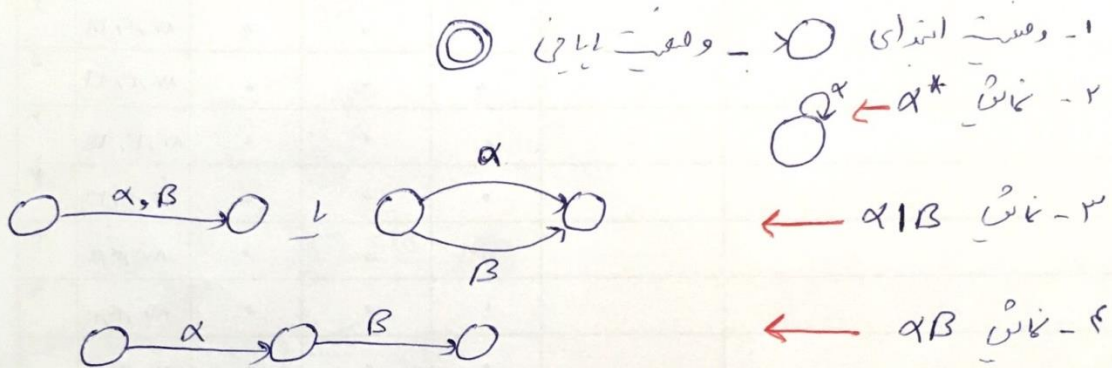 ۱- وضعیت ابتدای - وضعیت پایانی
۲- نمایش α* ← α
۳- نمایش α|B ← α B یا α,B
۴- نمایش αB ← α B